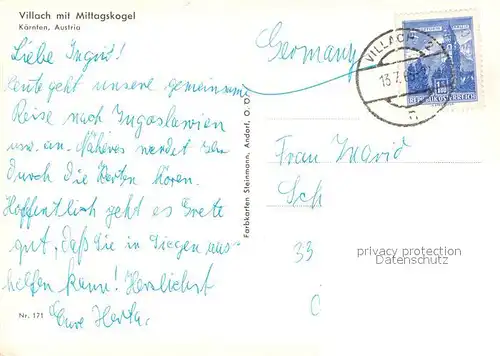 Villach mit Mittagskogel
Kärnten, Austria
Liebe Ingrid!
Heute geht unsere gemeinsame
Reise nach Jugoslawien
an. Näheres werdet
durch die Karten hören.
Hoffentlich geht es Grete
gut, daß sie in aus-
helfen kann! Herzlichst
Eure Herta.
Nr. 171
Farbkarten Steinmann, Andorf, O. Ö.
Germany
VILLACH 2
13.7
REPUBLIK ÖSTERREICH
Frau Ingrid
Sch
33
privacy protection
Datenschutz